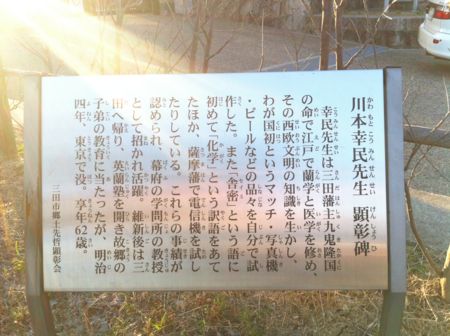 川本幸民先生 顕彰碑
幸民先生は三田藩主九鬼隆国
の命で江戸で蘭学と医学を修め、
その西欧文明の知識を生かし
わが国初というマッチ・写真機
・ビールなどの品々を自分で試
作した。また「舎密」という語に
初めて「化学」という訳語をあて
たほか、薩摩藩で電信機を試し
たりしている。これらの事績が
認められ、幕府の学問所の教授
として招かれ活躍。維新後は三
田へ帰り、英蘭塾を開き故郷の
子弟の教育に当たったが、明治
四年、東京で没。享年62歳。
三田市郷土先哲顕彰会